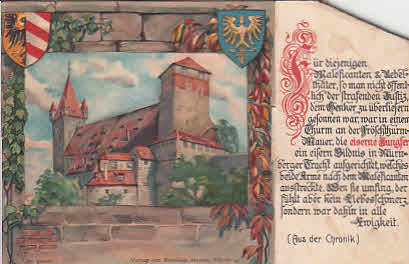 Für diejenigen
Maleficanten & Uebel-
thäter, so man nicht öffent-
lich der strafenden Justiz,
dem Henker zu überliefern
gesonnen war, war in einem
Thurm an der Fröschthurm-
Mauer, die eiserne Jungfer
ein eisern Bildnis in Nürn-
berger Tracht aufgerichtet, welches
beide Arme nach dem Maleficanten
ausstreckte. Wen sie umfing, der
fühlt aber kein Liebesschmerz,
sondern war dahin in alle
Ewigkeit.
(Aus der Chronik.)
Verlag von